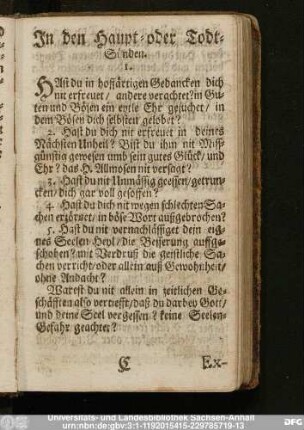 In den Haupt- oder Todt-
Sünden.
1.
HAst du in hoffärtigen Gedancken dich
nit erfreuet / andere verachtet? in Gu-
ten und Bösen ein eytle Ehr gesuchet / in
dem Bösen dich selbsten gelobet?
2. Hast du dich nit erfreuet in deines
Nächsten Unheil? Bist du ihm nit Miß-
günstig gewesen umb sein gutes Glück / und
Ehr? das H. Allmosen nit versagt?
3. Hast du nit Unmässig geessen / getrun-
cken / dich gar voll gesoffen?
4. Hast du dich nit wegen schlechten Sa-
chen erzörnet / in böse Wort außgebrochen?
5. Hast du nit vernachlässiget dein eig-
nes Seelen-Heyl / die Besserung auffge-
schoben? mit Verdruß die geistliche Sa-
chen verricht / oder allein auß Gewohnheit /
ohne Andacht?
Warest du nit allein in zeitlichen Ge-
schäfften also vertiefft / daß du darbey Gott /
und deine Seel vergessen? keine Seelen-
Gefahr geachtet?
C Ex-
Universitäts- und Landesbibliothek Sachsen-Anhalt
urn:nbn:de:gbv:3:1-1192015415-229785719-13